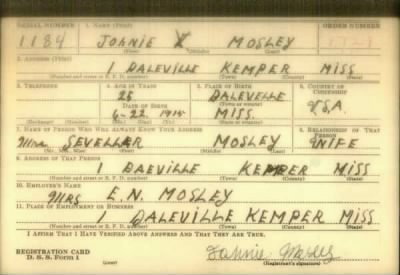 SERIAL NUMBER 1. NAME (Print) ORDER NUMBER
1184 JOHNIE MOSLEY
(First) (Middle) (Last)
2. ADDRESS (Print)
1 DALEVILLE KEMPER MISS
(Number and street or R. F. D. number) (Town) (County) (State)
3. TELEPHONE 4. AGE IN YEARS 5. PLACE OF BIRTH 6. COUNTRY OF CITIZENSHIP
DALEVELLE
DATE OF BIRTH (Town or county) U.S.A
6-22 MISS.
(Exchange) (Number) (Mo.) (Day) (Yr.) (State or country)
7. NAME OF PERSON WHO WILL ALWAYS KNOW YOUR ADDRESS 8. RELATIONSHIP OF THAT PERSON
MRS SEVELLER MOSLEY WIFE
(Mr., Mrs., Miss) (First) (Middle) (Last)
9. ADDRESS OF THAT PERSON
1 DAEVILLE KEMPER MISS
(Number and street or R. F. D. number) (Town) (County) (State)
10. EMPLOYER'S NAME
MRS E.N. MOSLEY
11. PLACE OF EMPLOYMENT OR BUSINESS
1 DALEVILLE KEMPER MISS
(Number and street or R. F. D. number) (Town) (County) (State)
I AFFIRM THAT I HAVE VERIFIED ABOVE ANSWERS AND THAT THEY ARE TRUE.
REGISTRATION CARD
D. S. S. Form 1 (over) (Registrant's signature)
Johnie Mosley